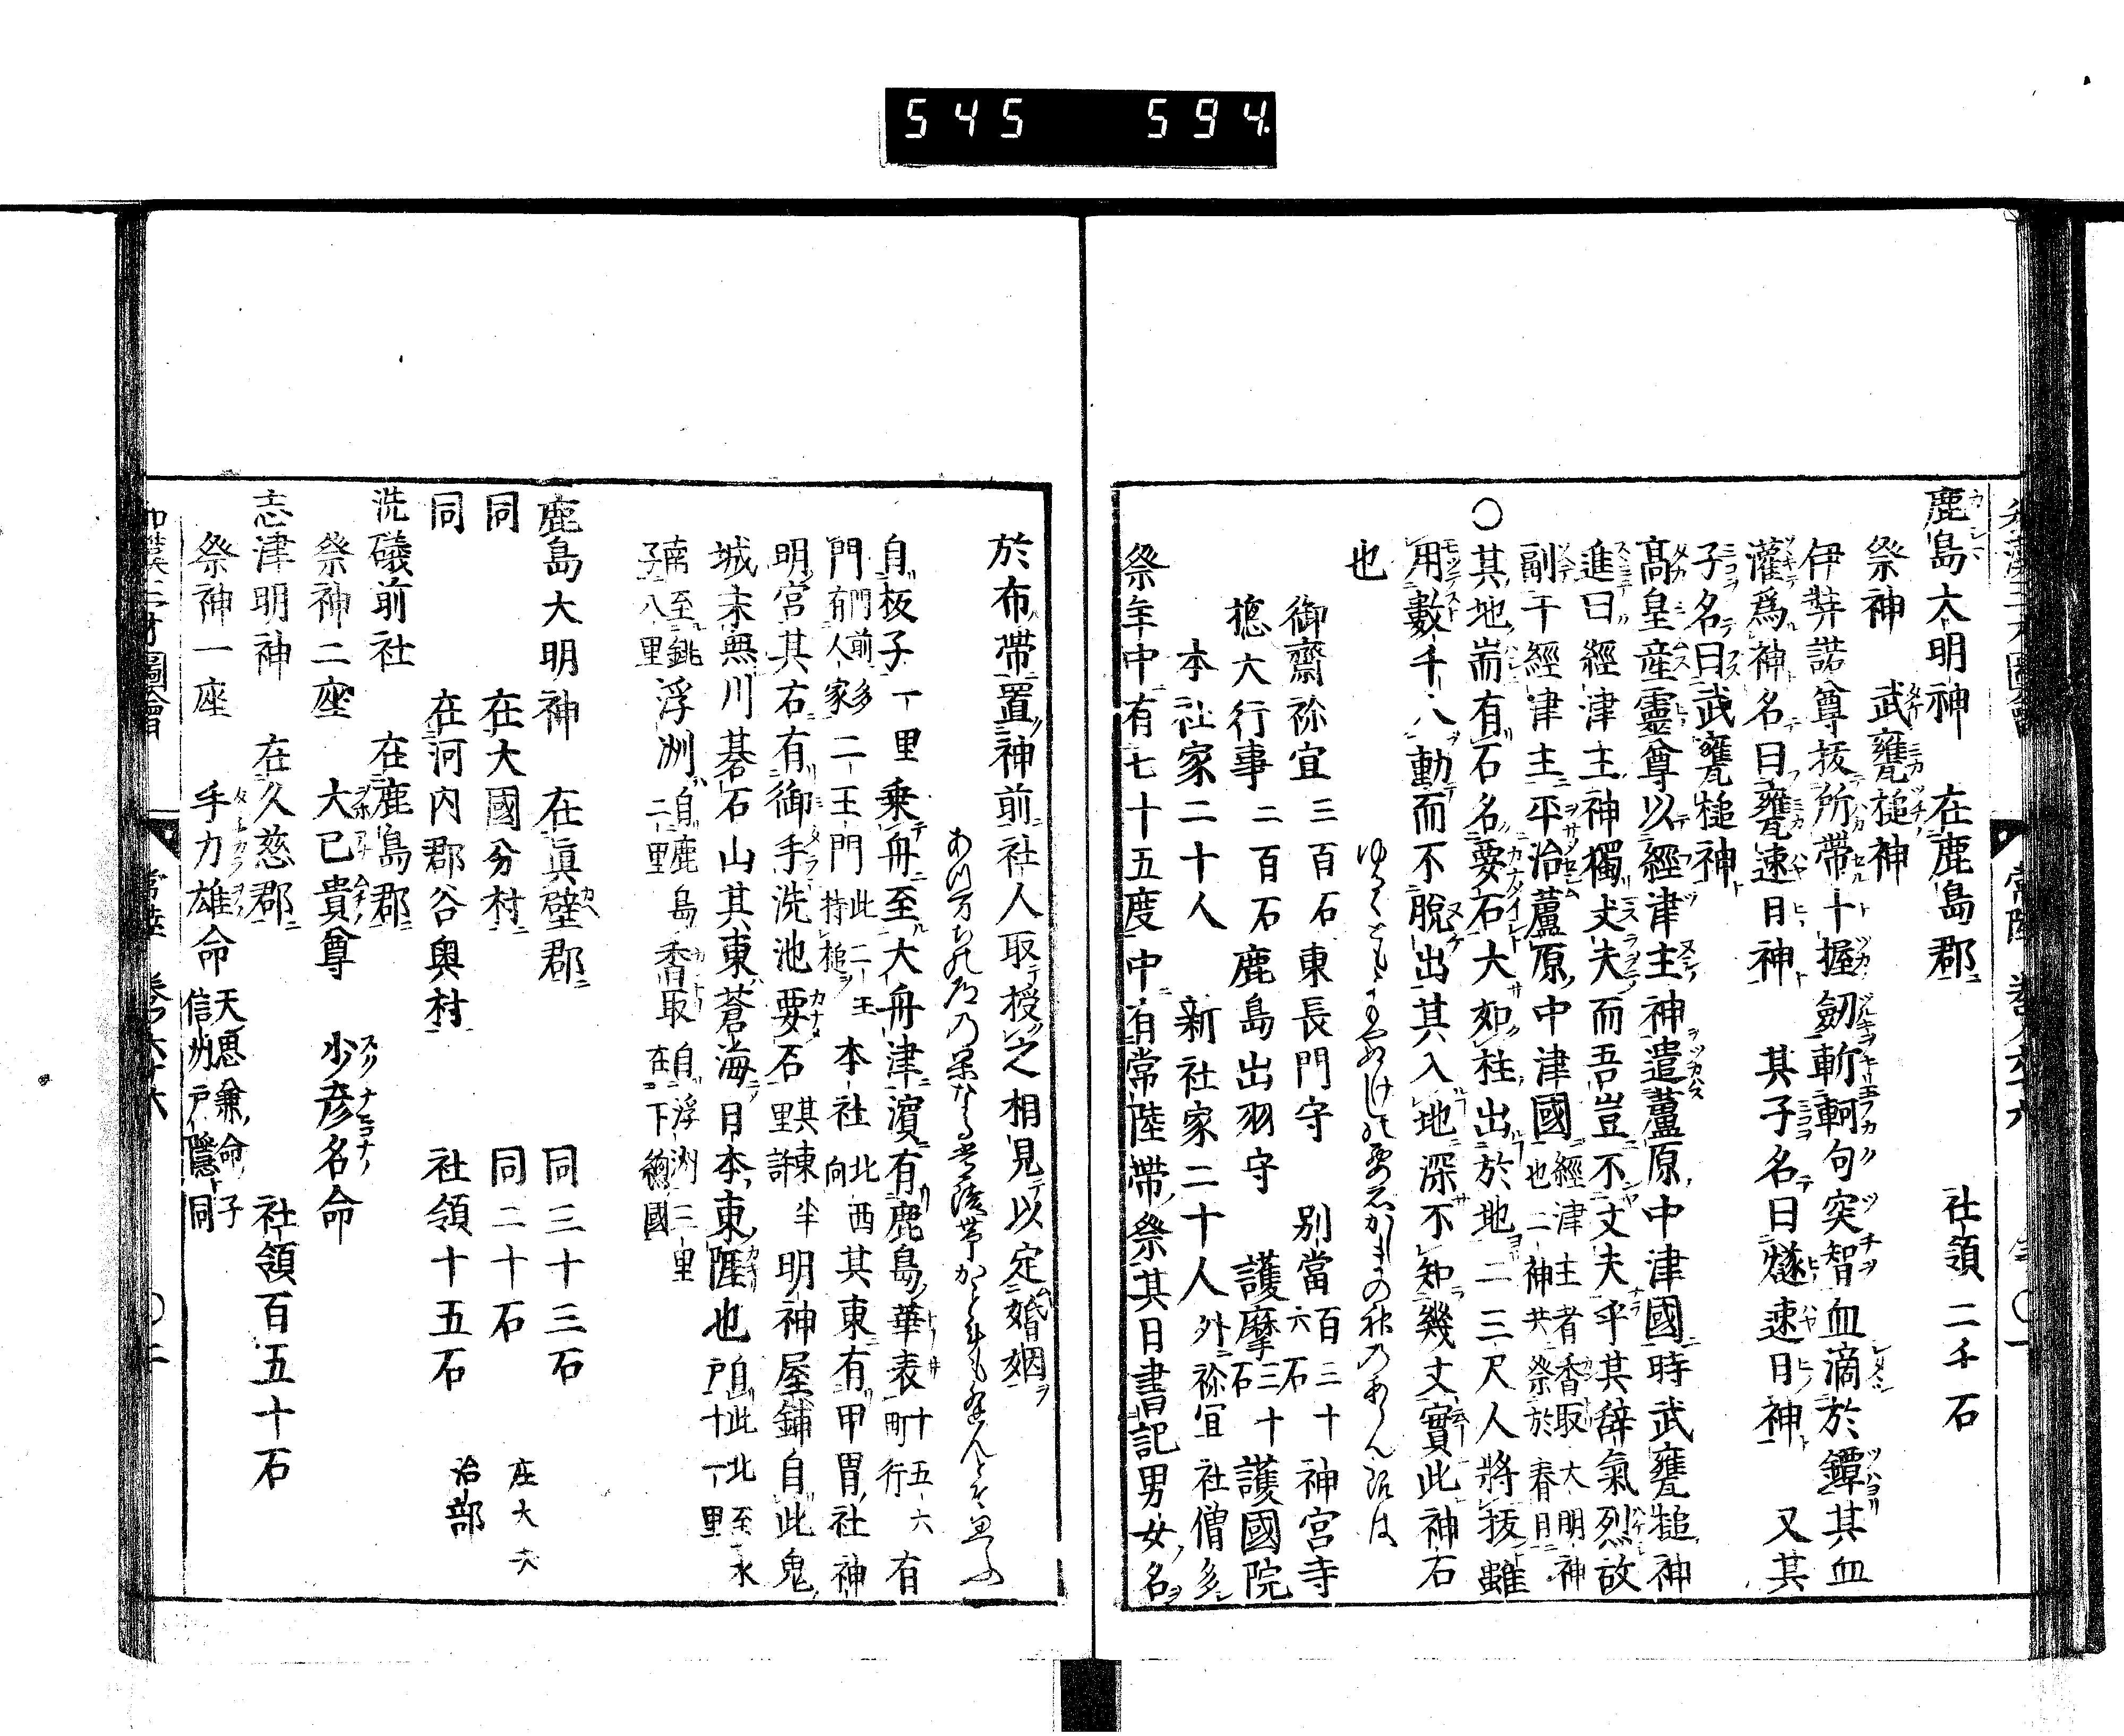 545 594.
鹿島大明神 在鹿島郡 社領二千石
祭神 武甕槌神
伊弉諾尊抜所帶十握劔斬軻句突智血滴於鐔其血
灌爲神名曰甕速日神 其子名曰熯速日神 又其
子名曰武甕槌神
髙皇産靈尊以經津主神遣蘆原中津國時武甕槌神
進曰經津主神獨丈夫而吾豈不丈夫乎其辭氣烈故
副于經津主平治蘆原中津國 經津主者香取大明神也二神共祭於春日
○其地耑有石名要石大如柱出於地二三尺人將抜雖
用數千人動而不脫出其入地深不知幾丈實此神石
也
御齋祢宜三百石東長門守 別當百二十六石神宮寺
摠大行事二百石鹿島出羽守 護摩三十石護國院
本社家二十人 新社家二十人 外祢宜社僧多
祭年中有七十五度中有常陸帶祭其日書記男女名
於布帶置神前社人取授之相見以定婚姻
自板子一里乗舟至大舟津濵有鹿島華表 十五六町行 有
門 門前多有人家 二王門 此二王持槌 本社 北西向 其東有甲冑社神
明宮其右有御手洗池要石 其東半里許 明神屋鋪自此鬼
城末無川碁石山其東蒼海日本東涯也 自此北至水戸十一里
南至銚子八里 浮洲 自鹿島二里 香取 自浮洲三里在下総國
鹿島大明神 在眞壁郡 同三十三石
同 在大國分村 同二十石 庄大六
同 在河内郡谷奥村 社領十五石 治部
洗礒前社 在鹿島郡
祭神二座 大已貴尊 少彦名命
志津明神 在久慈郡 社領百五十石
祭神一座 手力雄命 天思兼命子信州戸隱同